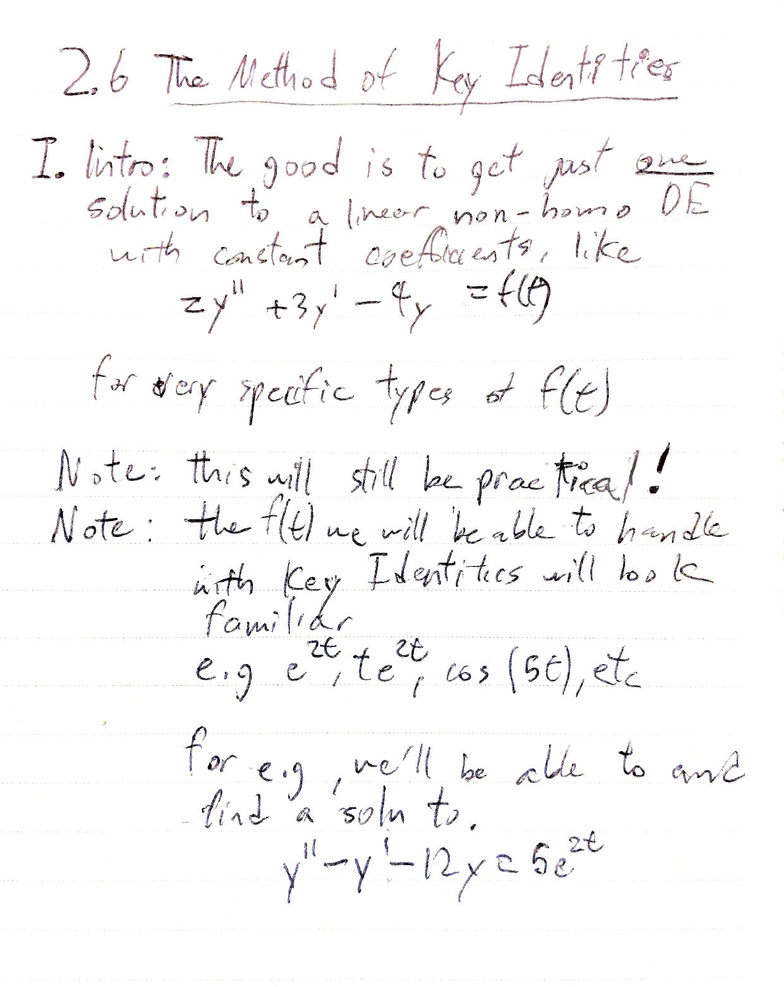 2.6 The Method of Key Identities
I. Intro: The good is to get just one
solution to a linear non-homo DE
with constant coefficients, like
2y'' + 3y' - 4y = f(t)
for very specific types of f(t)
Note: this will still be practical!
Note: the f(t) we will be able to handle
with Key Identities will look
familiar
e.g e^2t, te^2t, cos (5t), etc
for e.g, we'll be able to and
find a soln to.
y'' - y' - 12y = 5e^2t